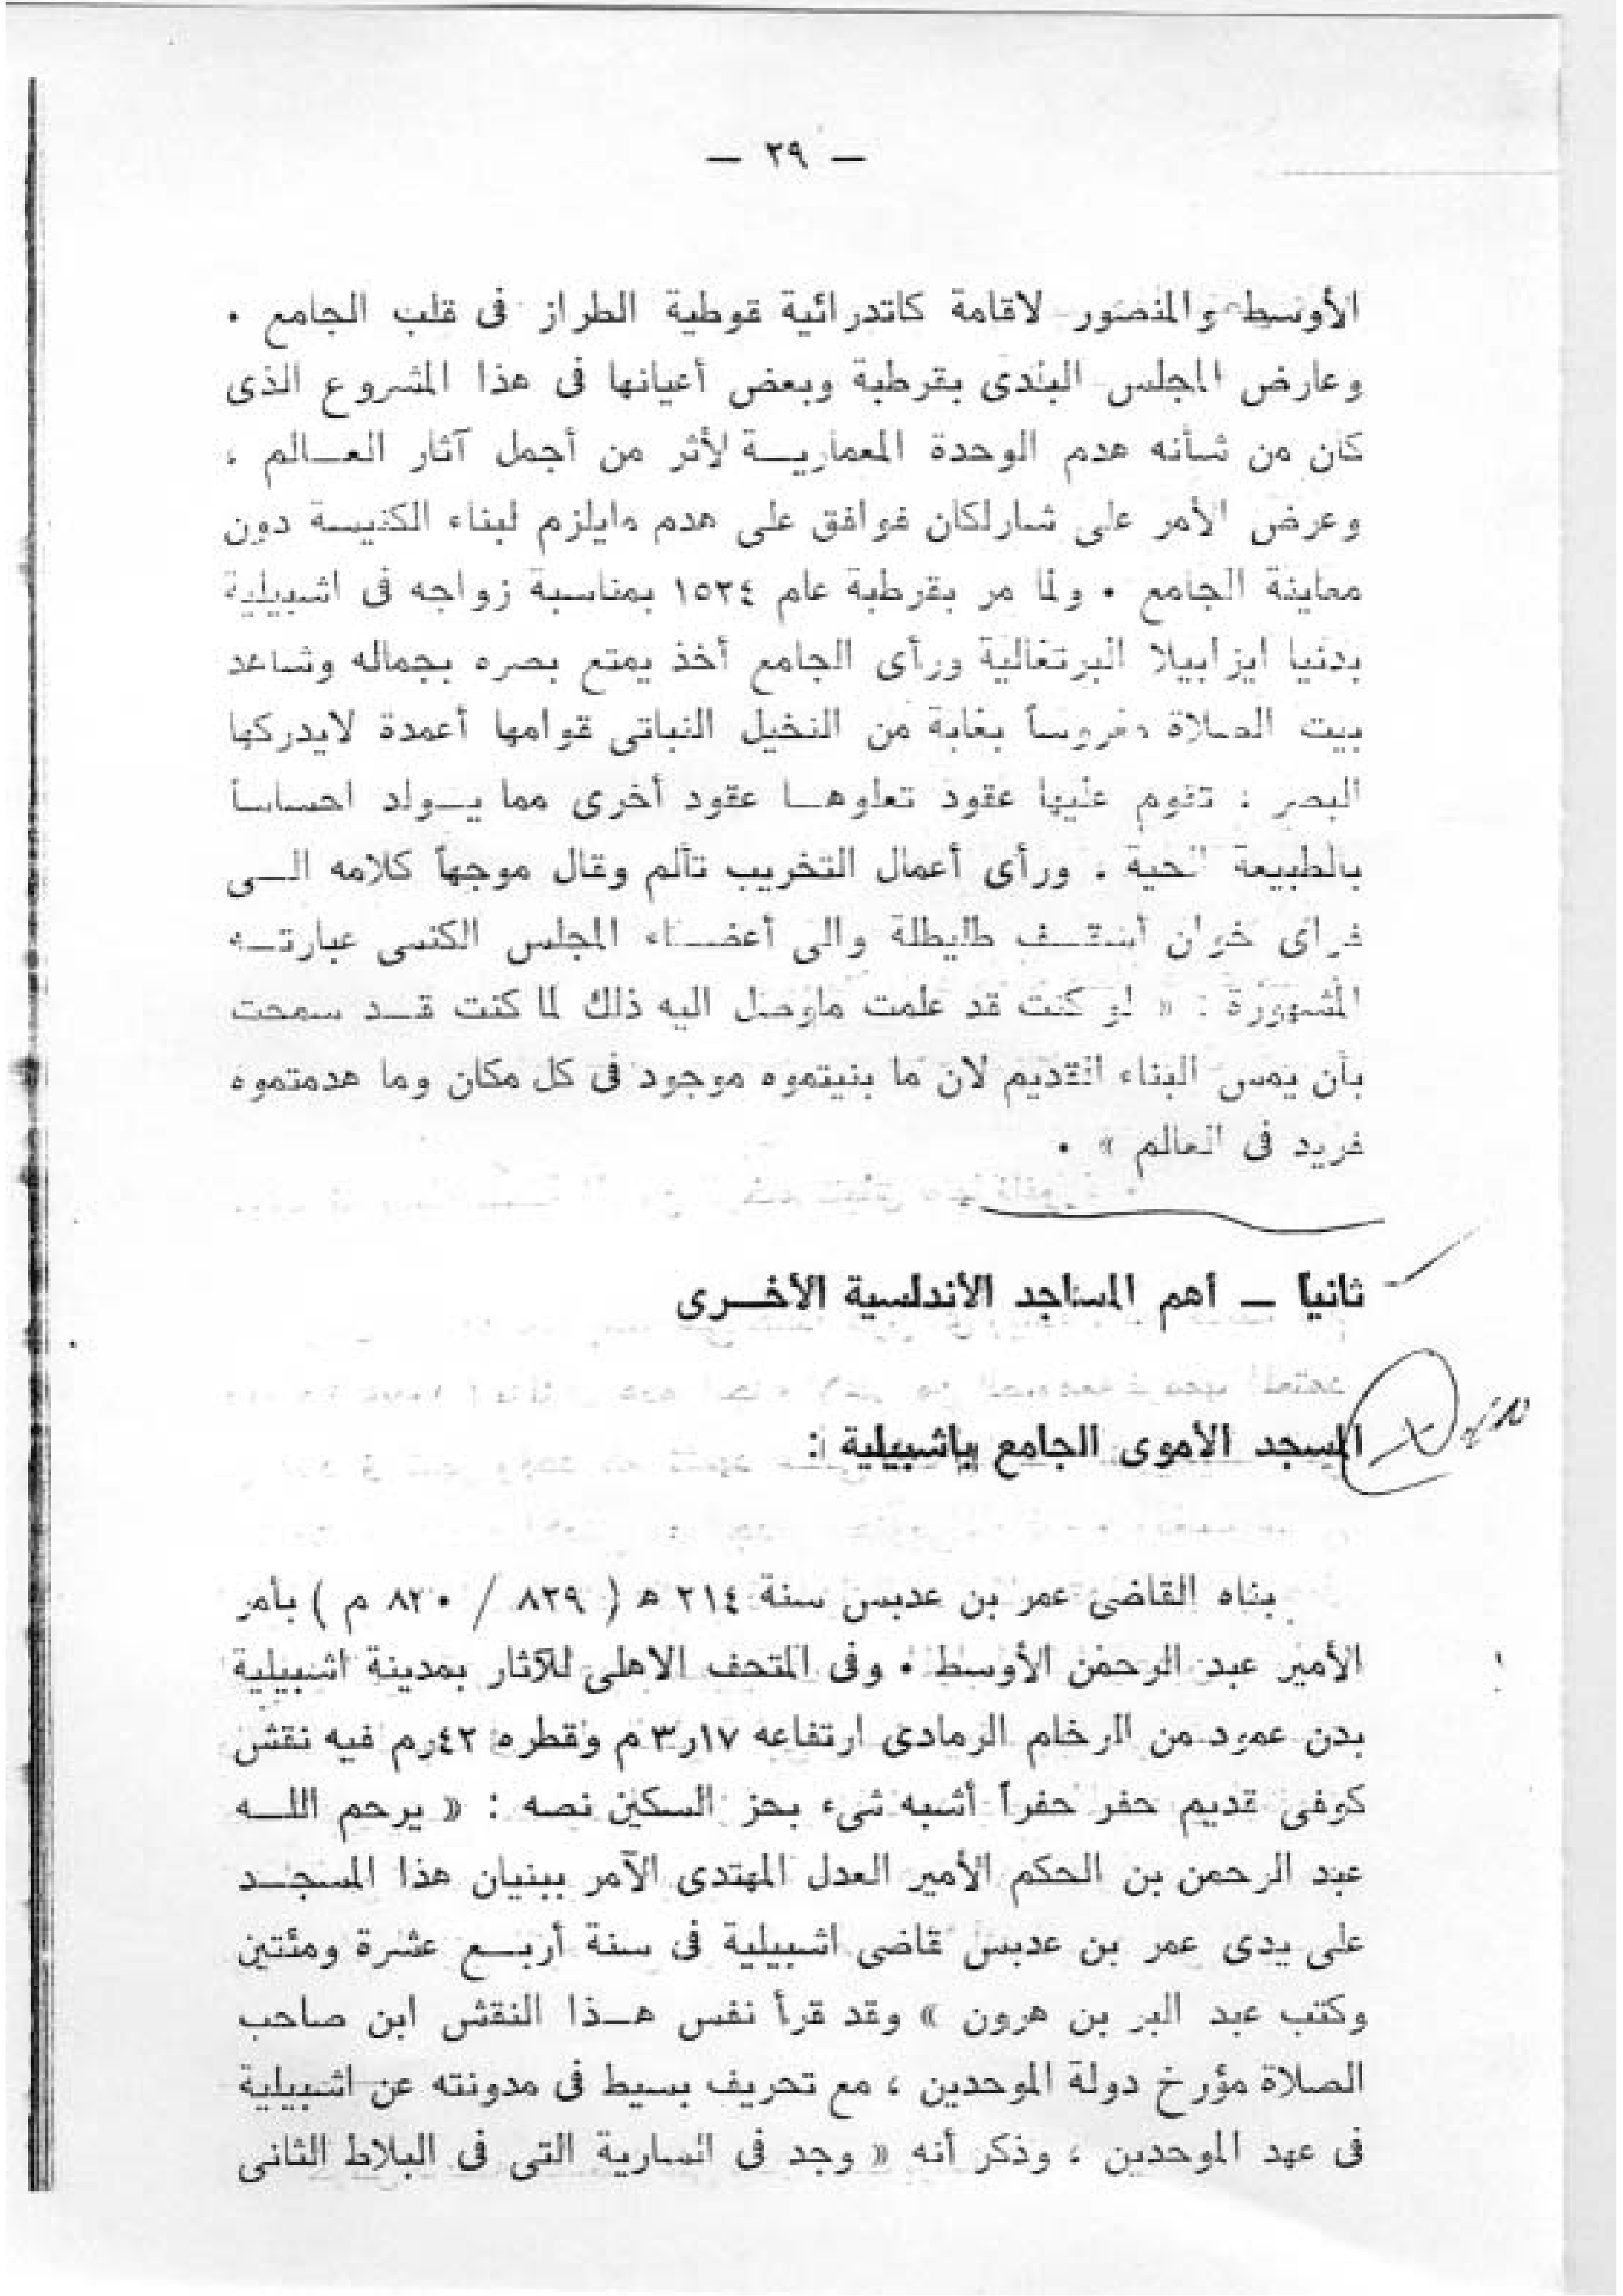 — ٢٩ —
الأوسط والمنصور لاقامة كاتدرائية قوطية الطراز فى قلب الجامع .
وعارض المجلس البلدى بقرطبة وبعض أعيانها فى هذا المشروع الذى
كان من شأنه هدم الوحدة المعماريـــة لأثر من أجمل آثار العـــالم ،
وعرض الأمر على شارلكان فوافق على هدم مايلزم لبناء الكنيسة دون
معاينة الجامع . ولما مر بقرطبة عام ١٥٢٤ بمناسبة زواجه فى اشبيلية
بدنيا ايزابيلا البرتغالية ورأى الجامع أخذ يمتع بصره بجماله وشاهد
بيت الصلاة مغروساً بغابة من النخيل النباتى قوامها أعمدة لايدركها
البصر ، تقوم عليها عقود تعلوهـــا عقود أخرى مما يـــولد احساساً
بالطبيعة الحية . ورأى أعمال التخريب تألم وقال موجهاً كلامه الـــى
فراى خوان أسقـــف طليطلة والى أعضـــاء المجلس الكنسى عبارتـــه
المشهورة : « لو كنت قد علمت ماوصل اليه ذلك لما كنت قـــد سمحت
بأن يمس البناء القديم لان ما بنيتموه موجود فى كل مكان وما هدمتموه
فريد فى العالم » .
ثانياً ــ أهم المساجد الأندلسية الأخـــرى
المسجد الأموى الجامع باشبيلية :
بناه القاضى عمر بن عدبس سنة ٢١٤ ه ( ٨٢٩ / ٨٢٠ م ) بأمر
الأمير عبد الرحمن الأوسط . وفى المتحف الاهلى للآثار بمدينة اشبيلية
بدن عمود من الرخام الرمادى ارتفاعه ١٧ر٣ م وقطره ٤٢ر م فيه نقش
كوفى قديم حفر حفراً أشبه شىء بحز السكين نصه : « يرحم اللـــه
عبد الرحمن بن الحكم الأمير العدل المهتدى الآمر ببنيان هذا المسجـــد
على يدى عمر بن عدبس قاضى اشبيلية فى سنة أربـــع عشرة ومئتين
وكتب عبد البر بن هرون » وقد قرأ نفس هـــذا النقش ابن صاحب
الصلاة مؤرخ دولة الموحدين ، مع تحريف بسيط فى مدونته عن اشبيلية
فى عهد الموحدين ، وذكر أنه « وجد فى السارية التى فى البلاط الثانى